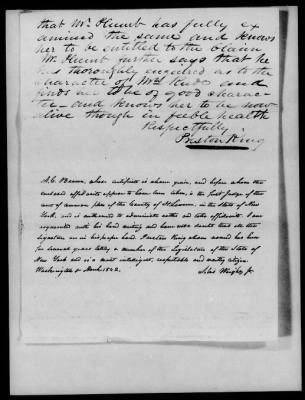 that Mr. Plumb has fully ex
amined the same and knows
her to be entitled to the claim
Mr Plumb further says that he
has thoroughly enquired as to the
character of Mrs and
finds to be of good charac-
ter and knows her to be now
alive though in feeble health
Respectfully
Preston King
whose certificate is above given, and before whom the
enclosed affidavits appear to have been taken, is the first Judge of the
court of common pleas of the County of St Lawrence, in the State of New
York, and is authorised to administer oaths and take affidavits. I am
acquainted with his hand writing and have no doubt that the
signature is in his proper hand. Preston King whose name is has been
for several years a member of the Legislature of the State of
New York and is a most intelligent, respectable and worthy citizen.
Washington March 1842. Silas Wright Jr